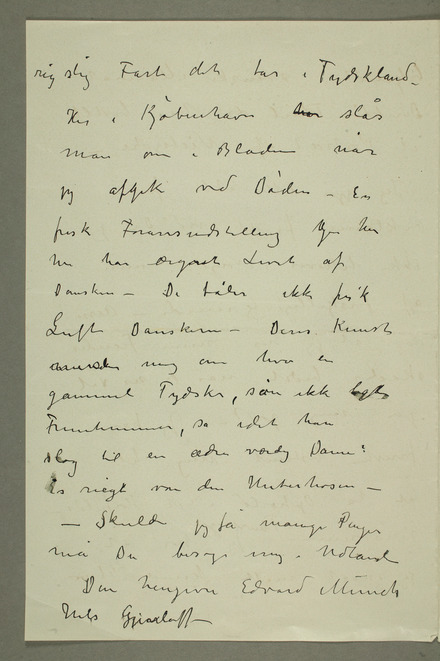 rigtig Fart det tar i Tydskland –
Her i Kjøbenhavn slås
man om i Bladene når
jeg afgik ved Døden – En
frisk Forårsudstilling her
har ærgret Livet af
Dansken – De tåler ikke frisk
Luft Danskerne – Deres Kunst
minder mig om hvor en
gammel Tydsker, som ikke
Fruentimmer, sa idet han
slog til en ældre værdig Dame:
Es riegt von den Unterhosen –
– Skulde jeg få mange Penger
må Du besøge mig i Udlandet
Din hengivne Edvard Munch
Hils Gjierløff